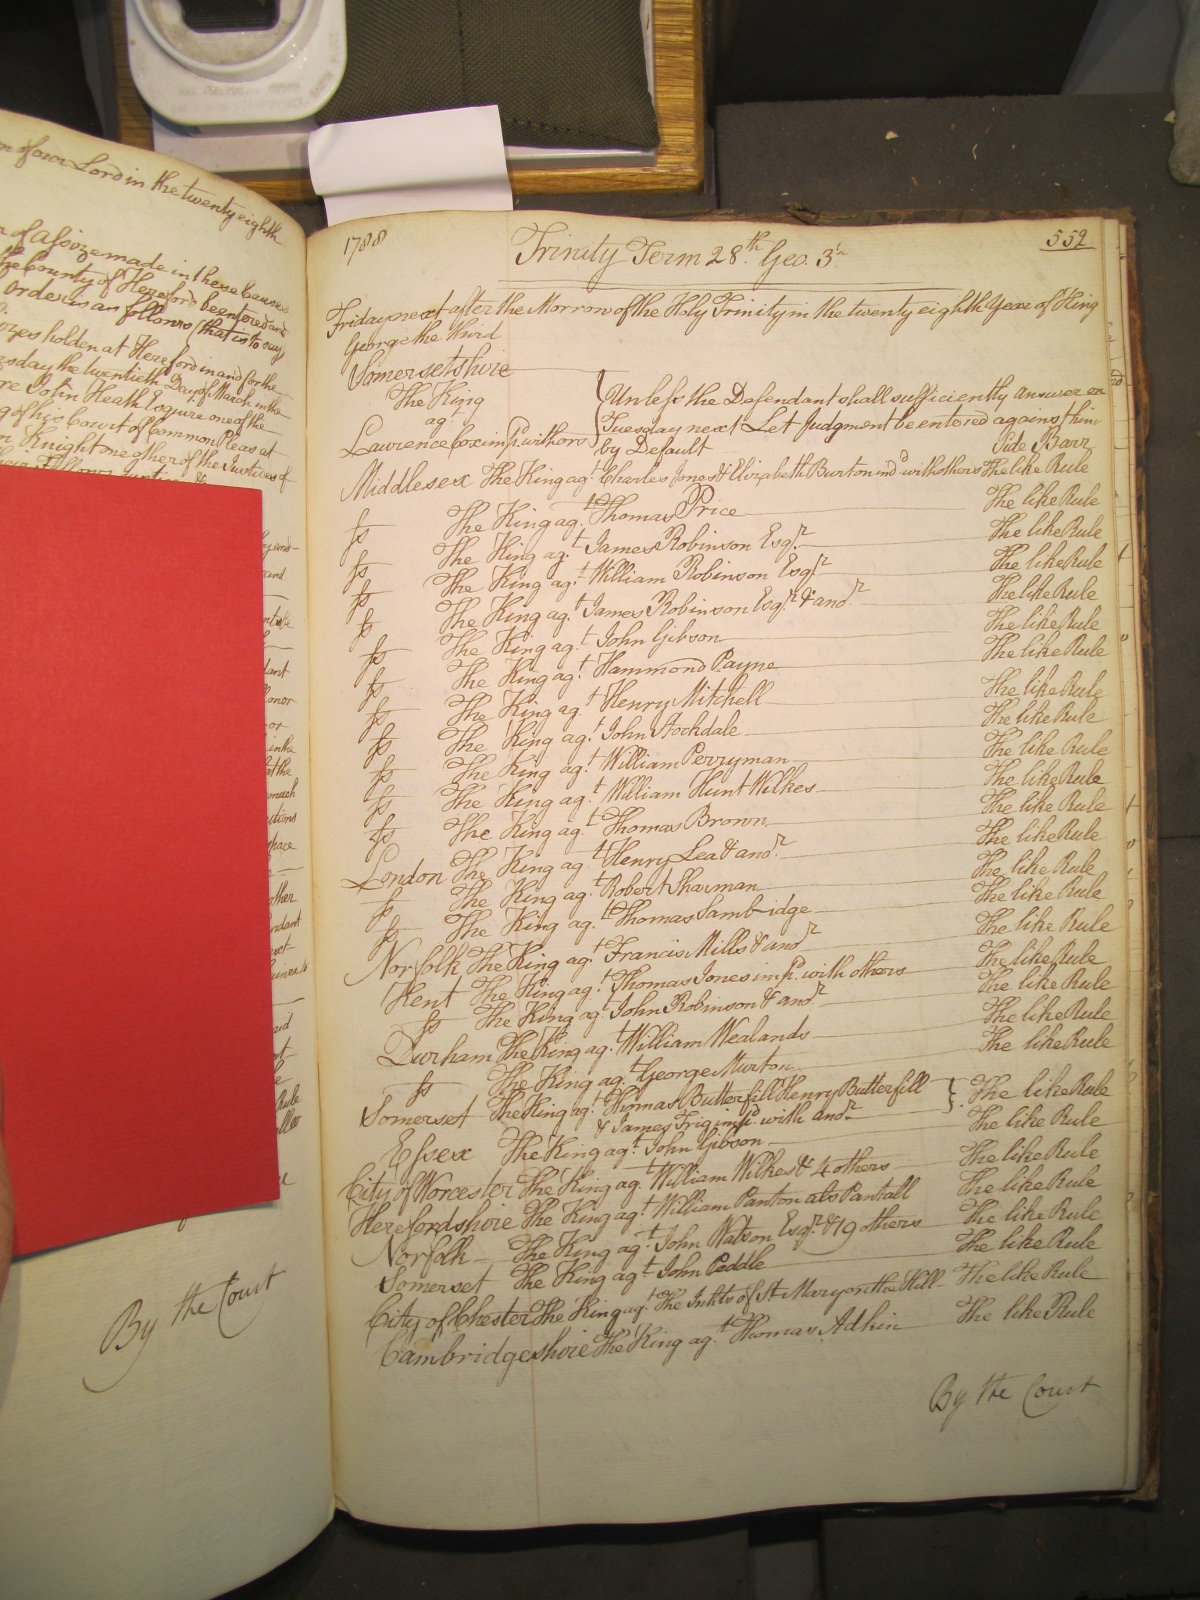 n of our Lord in the twenty eighth
n of Assize made in these Causes
the County of Hereford be enlarged
order is as follows (that is to say)
izes holden at Hereford in and for the
sday the twentieth Day of March in the
re John Heath Esquire one of the
g of his Court of Common Pleas at
n Knight one other of the Justices of
By the Court
1788
Trinity Term 28th. Geo. 3d
552
Friday next after the Morrow of the Holy Trinity in the twenty eighth Year of King
George the third
Somersetshire
The King
agt.
Lawrence Cox imp. with ors
Unless the Defendant shall sufficiently answer on
Tuesday next Let Judgment be entered against him
by Default
Side Barr
Middlesex The King agt. Charles Jones & Elizabeth Burton ind with others The like Rule
ss The King agt. Thomas Price The like Rule
ss The King agt. James Robinson Esqr. The like Rule
ss The King agt. William Robinson Esqr. The like Rule
ss The King agt. James Robinson Esqr. & anor. The like Rule
ss The King agt. John Gibson The like Rule
ss The King agt. Hammond Payne The like Rule
ss The King agt. Henry Mitchell The like Rule
ss The King agt. John Stockdale The like Rule
ss The King agt. William Perryman The like Rule
ss The King agt. William Hunt Wilkes The like Rule
ss The King agt. Thomas Brown The like Rule
London The King agt. Henry Lea & anor. The like Rule
ss The King agt. Robert Sharman The like Rule
ss The King agt. Thomas Sambidge The like Rule
Norfolk The King agt. Francis Mills & anor. The like Rule
Kent The King agt. Thomas Jones imp. with others The like Rule
ss The King agt. John Robinson & anor. The like Rule
Durham The King agt. William Wealands The like Rule
ss The King agt. George Murton The like Rule
Somerset The King agt. Thomas Butterfill Henry Butterfill
& James Trig imp. with anor. } The like Rule
Essex The King agt. John Gibson The like Rule
City of Worcester The King agt. William Wilkes & 4 others The like Rule
Herefordshire The King agt. William Panton als Pantall The like Rule
Norfolk The King agt. John Watson Esqr. & 19 others The like Rule
Somerset The King agt. John Peddle The like Rule
City of Chester The King agt. The Inhts of St. Mary on the Hill The like Rule
Cambridgeshire The King agt. Thomas Adkin The like Rule
By the Court